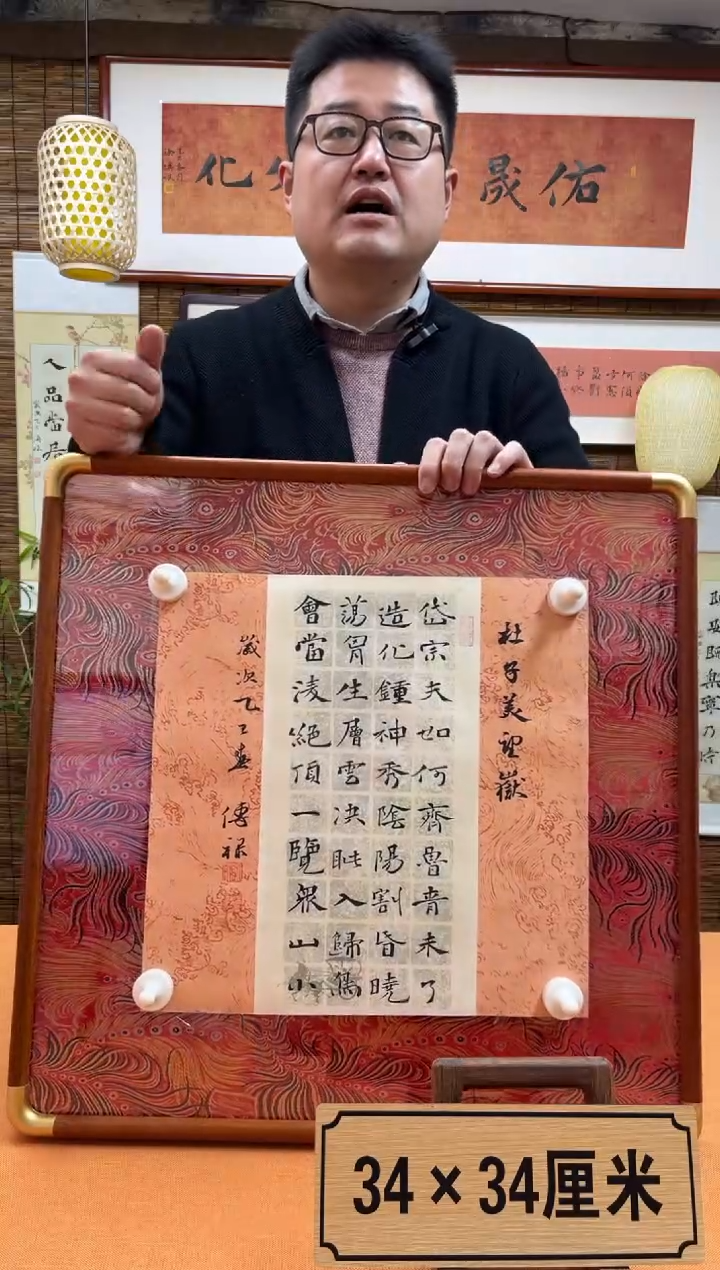 佑晟
化
人品當居
杜子美望嶽
岱宗夫如何齊魯青未了
造化鍾神秀陰陽割昏曉
蕩胷生層雲決眦入歸鳥
會當淩絕頂一覽衆山小
歲次乙巳春
34×34厘米